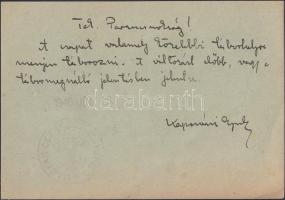 Tek. Parancsnokság!
A csapat valamely közelebbi táborhelyre
menjen táborozni. A változást előbb, vagy a
tábormegnyitó jelentésben jelentse.
Kaposvári Gyula
darabanth